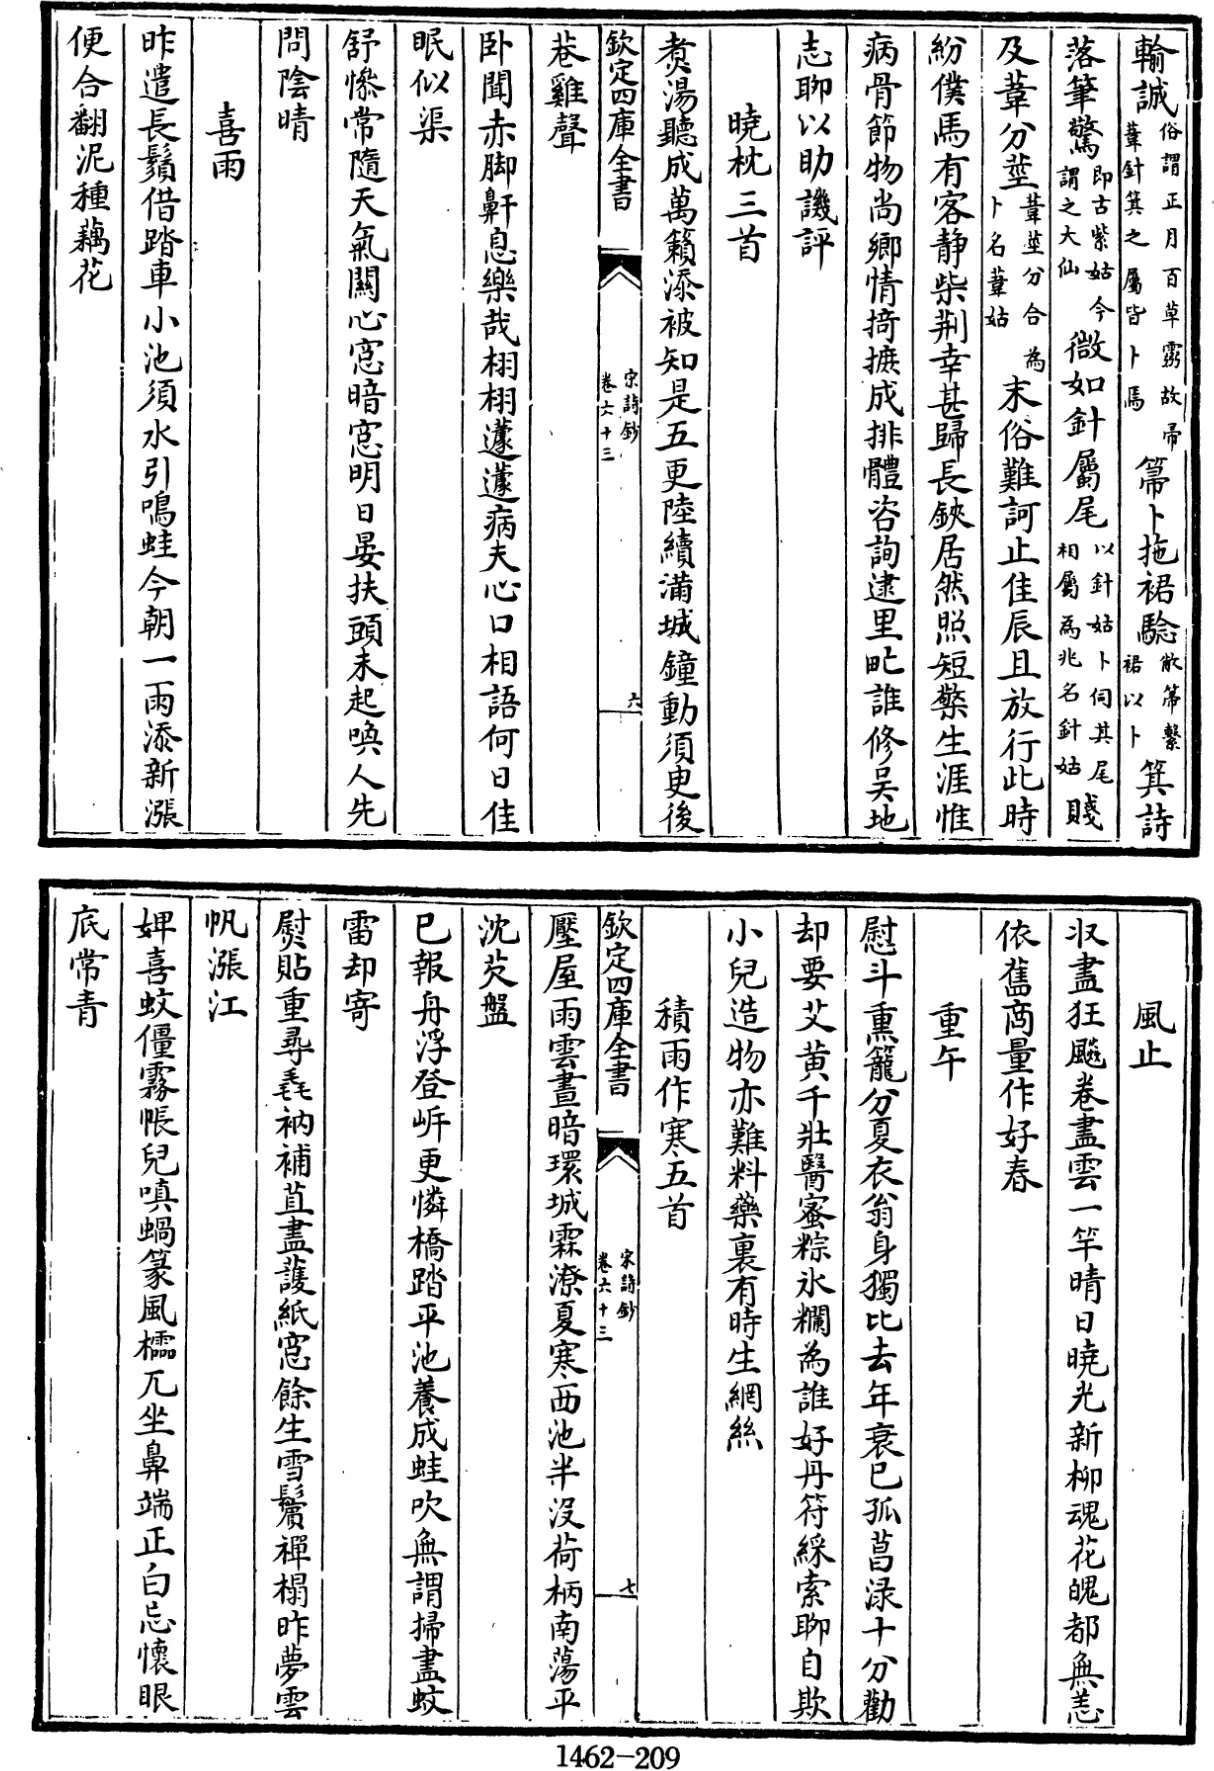 輸誠俗謂正月百草靈故帚葦針箕之屬皆卜焉箒卜拖裙驗敝箒繫裙以卜箕詩
落筆驚即古紫姑今謂之大仙微如針屬尾以針姑卜伺其尾相屬為兆名針姑賤
及葦分莖葦莖分合為卜名葦姑末俗難訶止佳辰且放行此時
紛僕馬有客静柴荆幸甚歸長鋏居然照短檠生涯惟
病骨節物尚鄉情掎摭成排體咨詢逮里甿誰修吳地
志聊以助譏評
曉枕三首
煑湯聽成萬籟添被知是五更陸續滿城鐘動須臾後
巷雞聲
欽定四庫全書
宋詩鈔
卷六十三
六
卧聞赤脚鼾息樂哉栩栩蘧蘧病夫心口相語何日佳
眠似渠
舒慘常隨天氣闗心窓暗窓明日晏扶頭未起喚人先
問陰晴
喜雨
昨遣長鬚借踏車小池須水引鳴蛙今朝一雨添新漲
便合翻泥種藕花
風止
収盡狂飈卷盡雲一竿晴日曉光新柳魂花魄都無恙
依舊商量作好春
重午
慰斗熏籠分夏衣翁身獨比去年衰已孤菖渌十分勸
却要艾黄千壯醫蜜粽氷糰為誰好丹符綵索聊自欺
小兒造物亦難料藥裏有時生網絲
積雨作寒五首
欽定四庫全書
宋詩鈔
卷六十三
七
壓屋雨雲晝暗環城霖潦夏寒西池半沒荷柄南蕩平
沈芡盤
已報舟浮登岍更憐橋踏平池養成蛙吹無謂掃盡蚊
雷却寄
熨貼重尋毳衲補苴盡護紙窓餘生雪鬢禪榻昨夢雲
帆漲江
婢喜蚊僵霧帳兒嗔蝸篆風櫺兀坐鼻端正白忘懷眼
底常青
1462-209